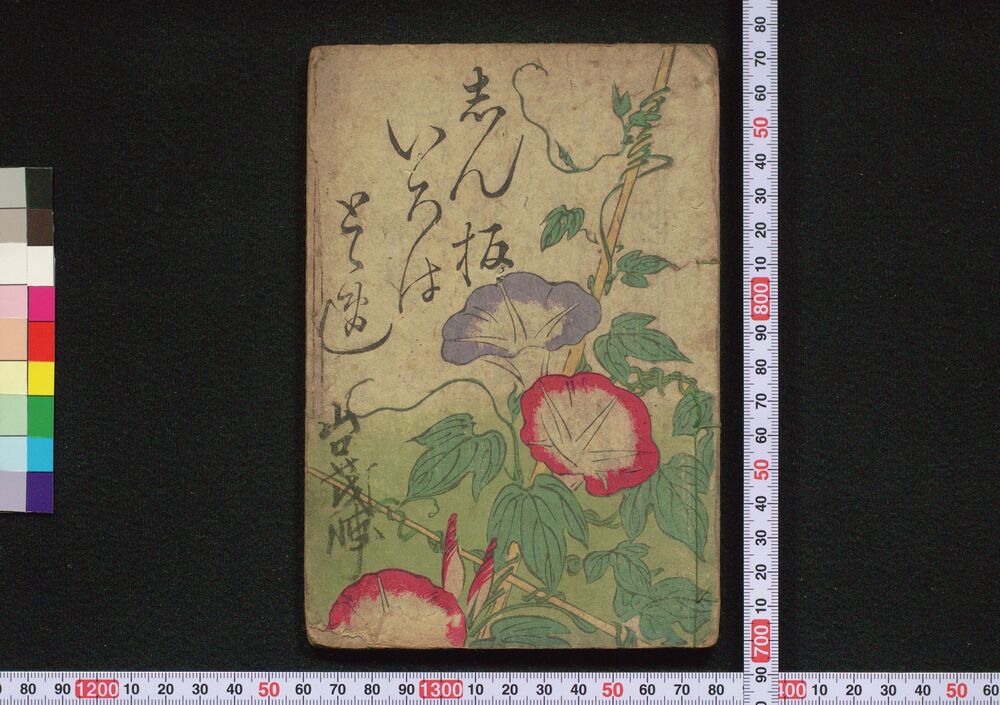 志ん板
いろは
とゝ逸
山口茂
80 70 60 50 40 30 20 10 800 90 80 70 60 50 40 30 20 10 700 90
80 90 1200 10 20 30 40 50 60 70 80 90 1300 10 20 30 40 50 60 70 80 400 10 20 30 40 50 60